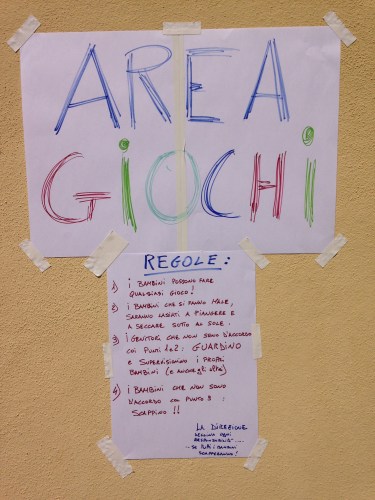 AREA
GIOCHI
REGOLE:
1) I BAMBINI POSSONO FARE
QUALSIASI GIOCO!
2) I BAMBINI CHE SI FANNO MALE,
SARANNO LASCIATI A PIANGERE E
A SECCARE SOTTO AL SOLE.
3) I GENITORI CHE NON SONO D'ACCORDO
COI PUNTI 1 e 2: GUARDINO
E SUPERVISIONINO I PROPRI
BAMBINI (E ANCHE gli altri)
4) I BAMBINI CHE NON SONO
D'ACCORDO COL PUNTO 3:
SCAPPINO!!
LA DIREZIONE
DECLINA OGNI
RESPONSABILITÀ.....
...SE TUTTI I BAMBINI
SCAPPERANNO!